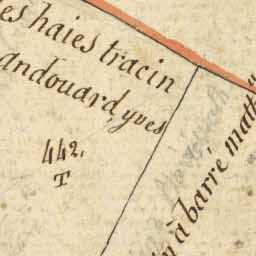 es haies tracin
andouard, yves
442.
T
à barré math